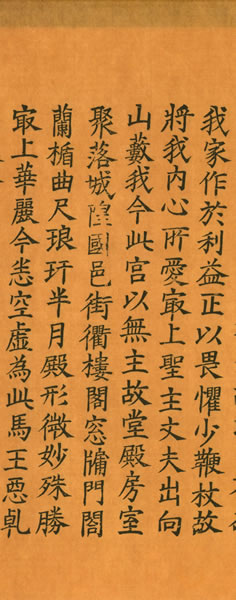 我家作於利益正以畏懼少鞭杖故
將我内心所愛㝡上聖主丈夫出向
山藪我今此宫以無主故堂殿房室
聚落城隍國邑街衢樓閣窓牖門閤
蘭楯曲尺琅玕半月殿形微妙殊勝
㝡上華麗今悉空虚為此馬王悪乹